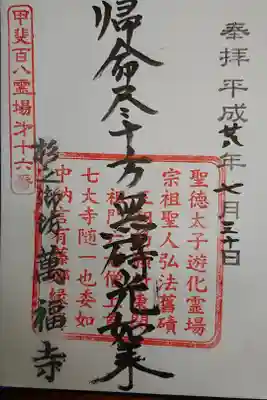 奉拝 平成廿八年七月三十日
帰命尽十方無碍光如来
聖徳太子遊化霊場
宗祖聖人弘法舊磧
七大寺随一也委如
中納言有
甲斐百八霊場第十六番
杉之御坊 萬福寺